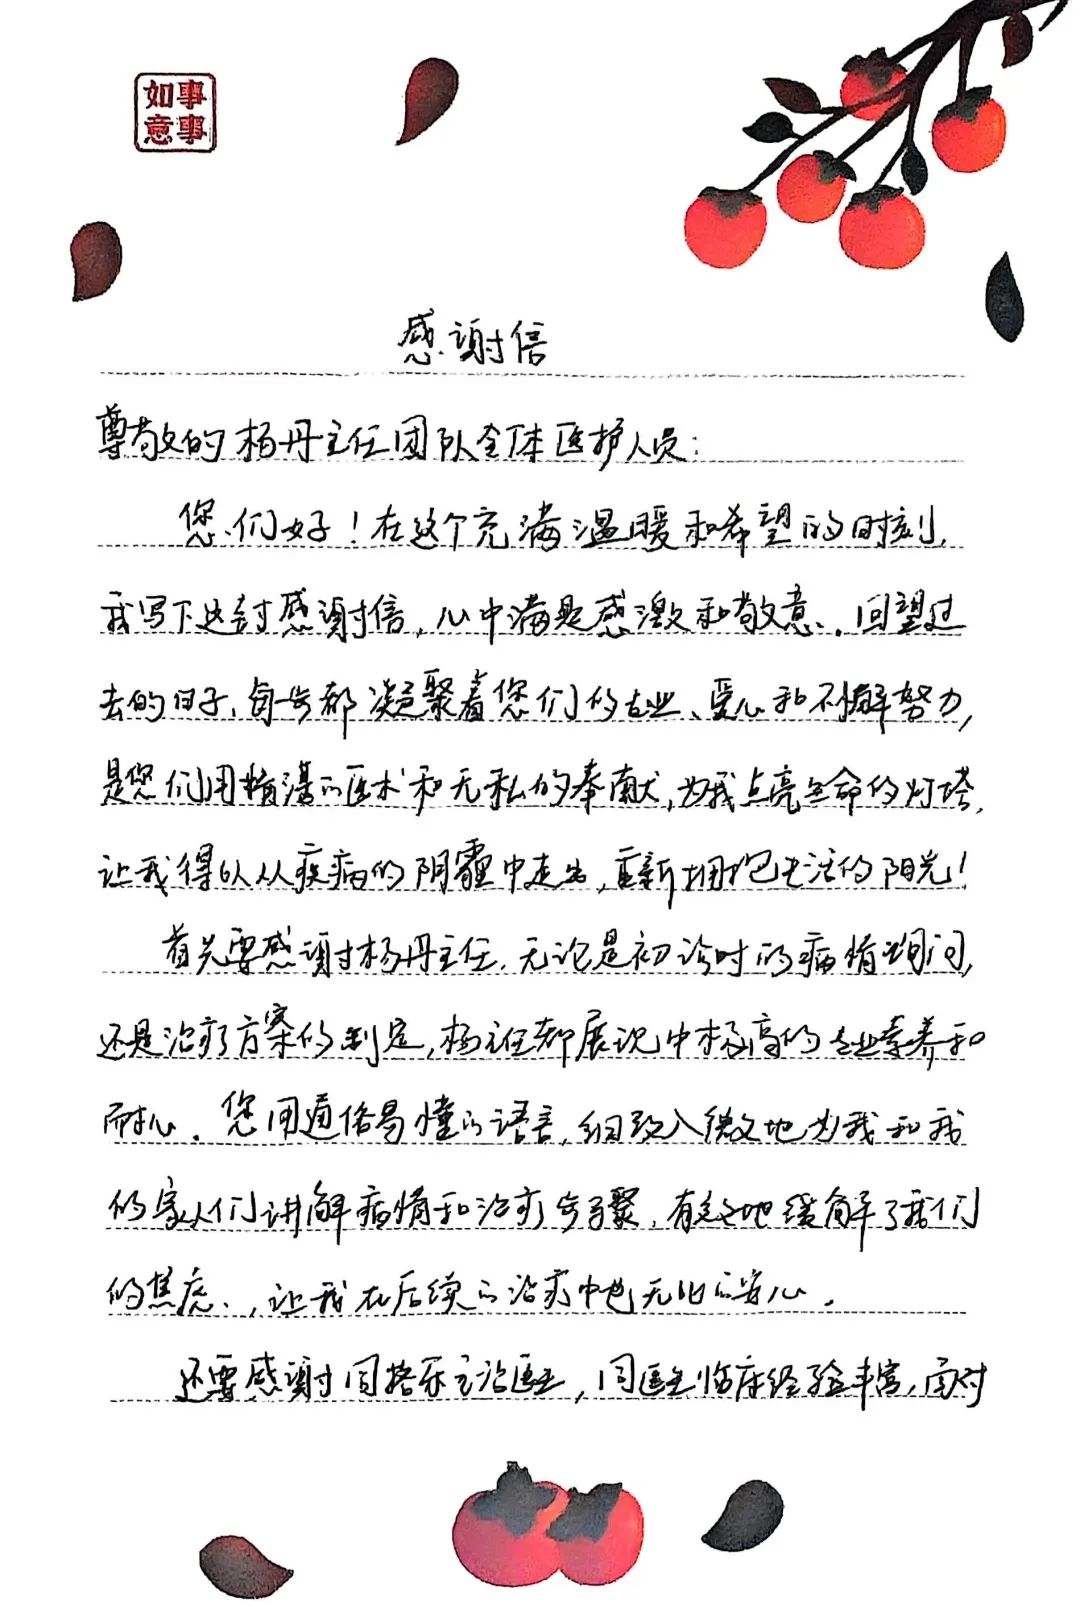 事事
如意
感谢信
尊敬的杨丹主任团队全体医护人员:
您们好!在这个充满温暖和希望的时刻,
我写下这封感谢信,心中满是感激和敬意。回望过
去的日子,每步都凝聚着您们的专业、爱心和不懈努力,
是您们用精湛的医术和无私的奉献,为我点亮生命的灯塔,
让我得以从疾病的阴霾中走出,重新拥抱生活的阳光!
首先要感谢杨丹主任,无论是初诊时的病情询问,
还是治疗方案的制定,杨主任都展现出极高的专业素养和
耐心。您用通俗易懂的语言,细致入微地为我和我
的家人们讲解病情和治疗步骤,有效地缓解了我们
的焦虑,让我在后续的治疗中也无比的安心。
还要感谢主治医生,医生临床经验丰富,面对